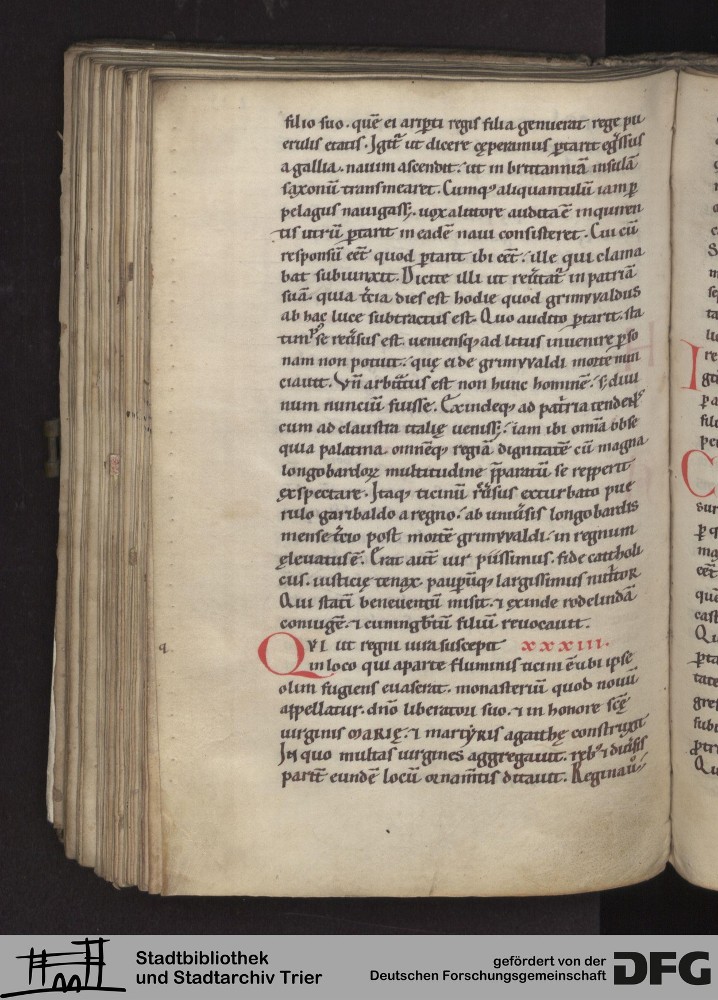 filio suo. quē ei aripti regis filia genuerat rege pu
erulis etatis. Igit͛ ut dicere cęperamus ꝑtarit egͣssus
a gallia. nauim ascendit. ut in brittanniā insulā
saxonū transmearet. Cumqꝫ aliquantulū iam ꝑ
pelagus nauigass&; uox a littore audita ē inquiren
tis utrū ꝑtarit in eadē naui consisteret. Cui cū
responsū eēt quod ꝑtarit ibi eēt. ille qui clama
bat subiunxit. Dicite illi ut reūtat͛ in patriā
suā. quia t͛cia dies est hodie quod grimvvaldus
ab hac luce subtractus est. Quo audito ꝑtarit. sta
tim post se reūsus est. ueniensqꝫ ad litus inuenire ꝑso
nam non potuit. quę ei de grimvvaldi morte nun
ciauit. Vn̄ arbitͣtus est non hunc hominē. sꝫ diui
num nunciū fuisse. Exindeqꝫ ad patͥria tendens
cum ad claustra italię uenisset; iam ibi omīa obse
quia palatina. omnēqꝫ regiā dignitatē cū magna
longobardoꝝ multitudine p̄paratū se repperit
expectare. Itaqꝫ ticinū reūsus exturbato pue
rulo garibaldo a regno. ab uniūsis longobardis
mense t͛cio post mortē grimvvaldi. in regnum
ęleuatus ē. Erat aut̄ uir piissimus. fide cattholi
cus. iusticię tenax. pauꝑūqꝫ largissimus nut͛tor
Qui statī beneuentū misit. ⁊ exinde rodelindā
coniugē. ⁊ cuningb͛tū filiū reuocauit.
QVI ut regni iura suscepit xxxiii.
in loco qui a parte fluminis ticini ē ubi ipse
olim fugiens euaserat. monasteriū quod nouū
appellatur. dn̄o liberatori suo. ⁊ in honore scę̄
uirginis MARIĘ. ⁊ martyRis agathę construxit
IN quo multas uirgines aggregauit. rebꝫ ⁊ diūsis
parit͛ eundē locū ornam̄tis ditauit. Regina ū.
q
Stadtbibliothek
und Stadtarchiv Trier
gefördert von der
Deutschen Forschungsgemeinschaft
DFG